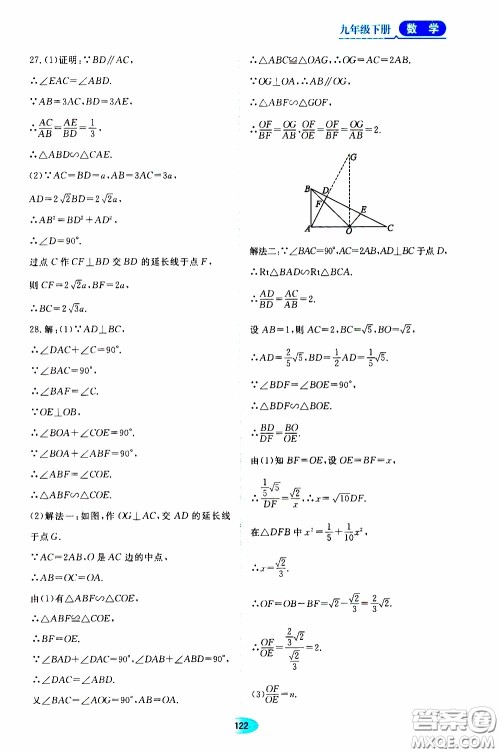 九年级下册 数 学
27. (1)证明:∵BD∥AC,
∴∠EAC=∠ABD.
∵AB=3AC,BD=3AE,
∴AC/AB=AE/BD=1/3,
∴△ABD∽△CAE.
(2)∵AC=BD=a,AB=3AC=3a,
AD=2√2BD=2√2a,
∴AB²=BD²+AD²,
∴∠D=90°.
过点 C 作 CF⊥BD 交 BD 的延长线于点 F,
则 CF=2√2a,BF=2a,
∴BC=2√3a.
28. 解:(1)∵AD⊥BC,
∴∠DAC+∠C=90°.
∵∠BAC=90°,
∴∠BAF=∠C.
∵OE⊥OB,
∴∠BOA+∠COE=90°.
∵∠BOA+∠ABF=90°,
∴∠ABF=∠COE.
∴△ABF∽△COE.
(2)解法一:如图,作 OG⊥AC,交 AD 的延长线
于点 G.
∵AC=2AB,O 是 AC 边的中点,
∴AB=OC=OA.
由(1)有△ABF∽△COE,
∴△ABF≌△COE,
∴BF=OE.
∵∠BAD+∠DAC=90°,∠DAB+∠ABD=90°,
∴∠DAC=∠ABD.
又∠BAC=∠AOG=90°,AB=OA,
∴△ABC≌△OAG,∴OG=AC=2AB.
∵OG⊥OA,∴AB∥OG,
∴△ABF∽△GOF,
∴OF/BF=OG/AB,∴OF/OE=OF/BF=OG/AB=2.
G
B
D
F
E
A
O
C
解法二:∵∠BAC=90°,AC=2AB,AD⊥BC 于点 D,
∴Rt△BAD∽Rt△BCA.
∴AD/BD=AC/AB=2.
设 AB=1,则 AC=2,BC=√5,BO=√2,
∴AD=2/5√5,BD=1/2AD=1/5√5.
∵∠BDF=∠BOE=90°,
∴△BDF∽△BOE,
∴BD/DF=BO/OE.
由(1)知 BF=OE,设 OE=BF=x,
∴1/5√5/DF=√2/x,∴x=√10DF.
在△DFB 中 x²=1/5+1/10x²,
∴x=√2/3.
∴OF=OB-BF=√2-√2/3=2/3√2.
∴OF/OE=2/3√2/√2/3=2.
(3)OF/OE=n.
122
答案圈
MXQE.COM